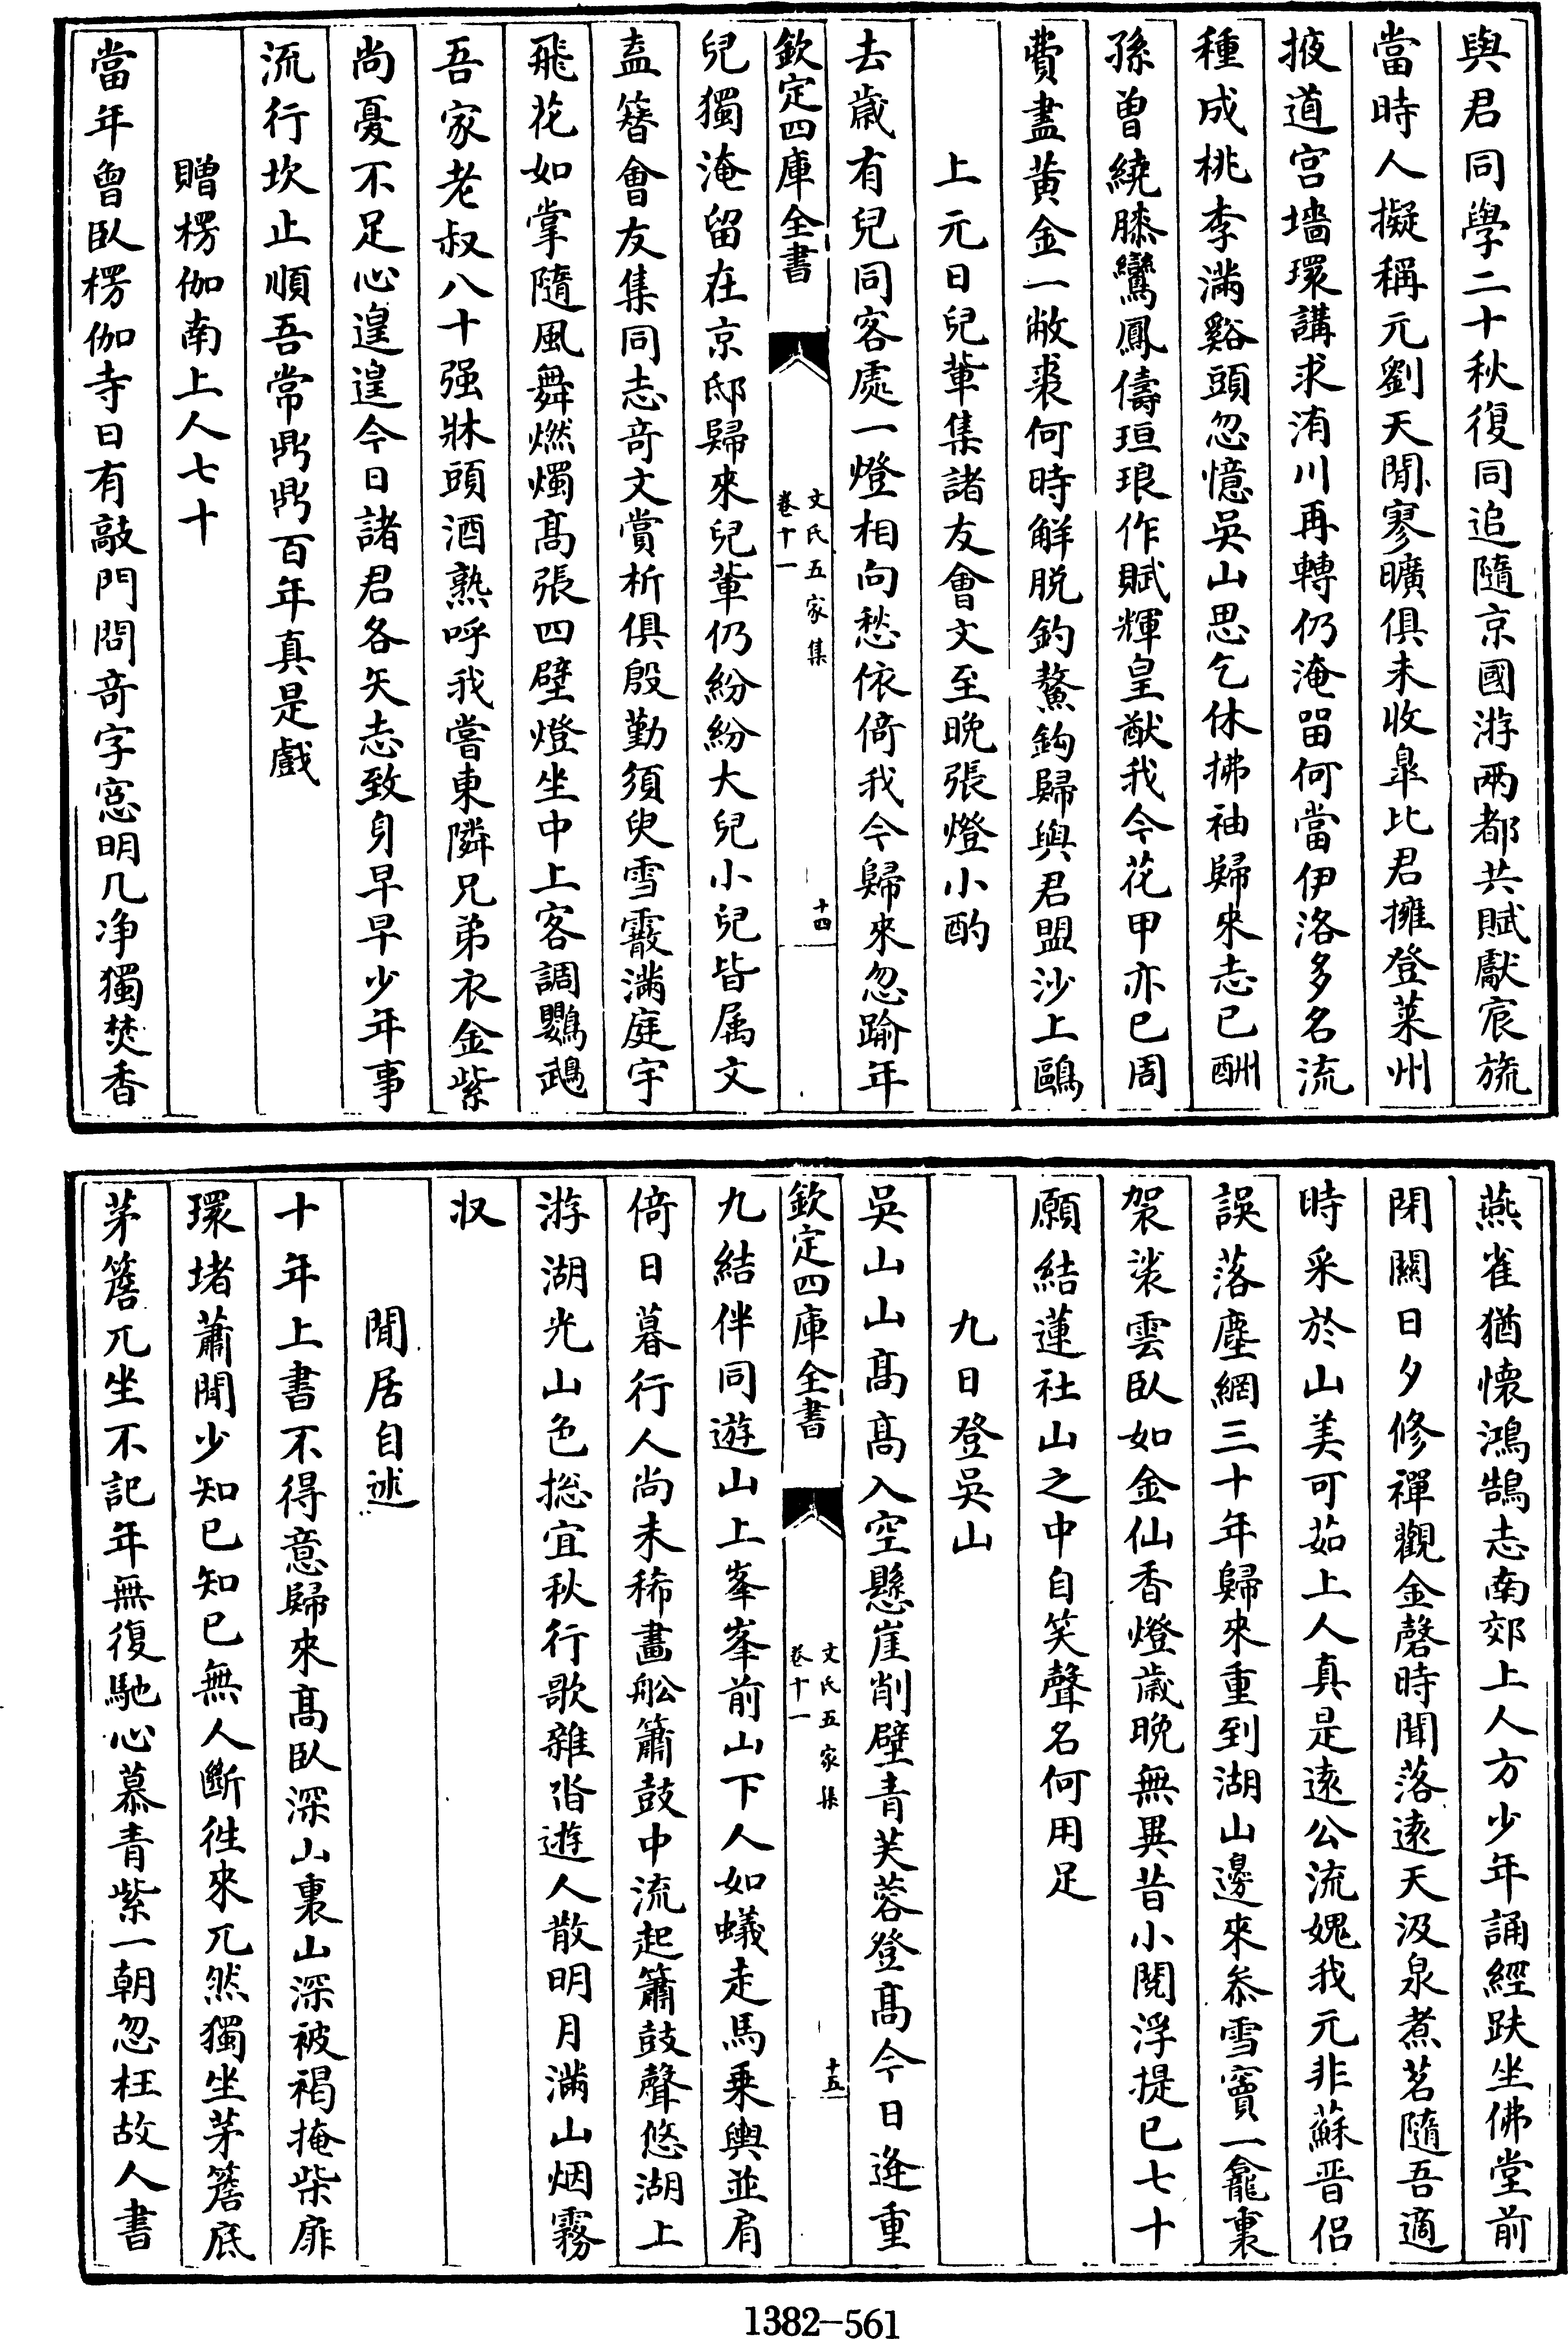 與君同學二十秋復同追隨京國游兩都共賦獻宸旒
當時人擬稱元劉天閒寥曠俱未收臯比君擁登萊州
掖道宫墻環講求洧川再轉仍淹畱何當伊洛多名流
種成桃李滿谿頭忽憶吳山思乞休拂袖歸來志已酬
孫曾繞膝鸞鳳儔垣琅作賦輝皇猷我今花甲亦已周
費盡黄金一敝裘何時解脱釣鰲鈎歸與君盟沙上鷗
上元日兒輩集諸友會文至晩張燈小酌
去歲有兒同客處一燈相向愁依倚我今歸來忽踰年
欽定四庫全書
文氏五家集
卷十一
十四
兒獨淹留在京邸歸來兒輩仍紛紛大兒小兒皆属文
盍簪會友集同志竒文賞析俱殷勤須臾雪霰滿庭宇
飛花如掌隨風舞燃燭髙張四壁燈坐中上客調鸚鵡
吾家老叔八十强牀頭酒熟呼我嘗東隣兄弟衣金紫
尚憂不足心遑遑今日諸君各矢志致身早早少年事
流行坎止順吾常鼎鼎百年真是戯
贈楞伽南上人七十
當年曾臥楞伽寺日有敲門問竒字窓明几净獨焚香
燕雀猶懷鴻鵠志南郊上人方少年誦經趺坐佛堂前
閉闗日夕修禪觀金磬時聞落遠天汲泉煮茗隨吾適
時采於山美可茹上人真是遠公流媿我元非蘇晋侣
誤落塵網三十年歸來重到湖山邊來叅雪竇一龕裏
袈裟雲臥如金仙香燈歲晩無異昔小閱浮提已七十
願結蓮社山之中自笑聲名何用足
九日登吳山
吳山山髙髙入空懸崖削壁青芙蓉登髙今日逢重
欽定四庫全書
文氏五家集
卷十一
十五
九結伴同遊山上峯峯前山下人如蟻走馬乗輿並肩
倚日暮行人尚未稀畫舩簫鼓中流起簫鼓聲悠湖上
游湖光山色揔宜秋行歌雜沓遊人散明月滿山烟霧
収
閒居自述
十年上書不得意歸來髙臥深山裏山深被褐掩柴扉
環堵蕭閒少知已知已無人斷徃來兀然獨坐茅簷底
茅簷兀坐不記年無復馳心慕青紫一朝忽枉故人書
1382-561